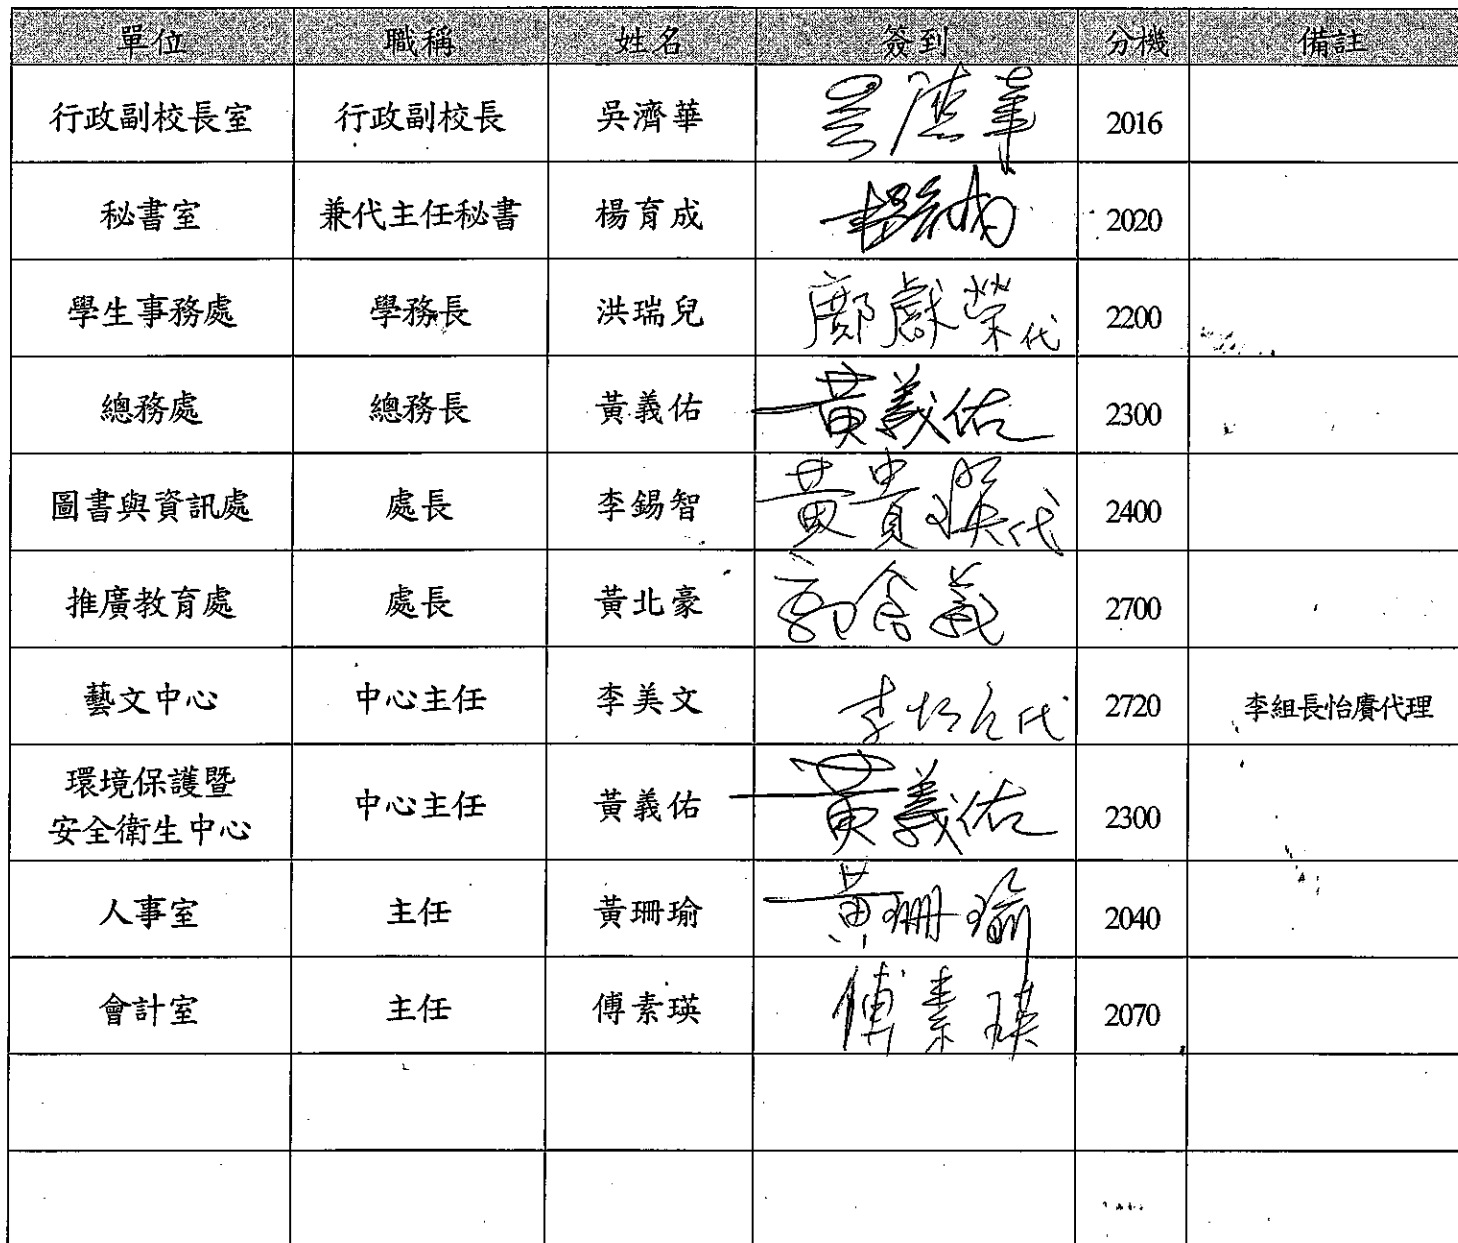 單位 職稱 姓名 簽到 分機 備註
行政副校長室 行政副校長 吳濟華 吳濟華 2016
秘書室 兼代主任秘書 楊育成 2020
學生事務處 學務長 洪瑞兒 鄺獻榮代 2200
總務處 總務長 黃義佑 黃義佑 2300
圖書與資訊處 處長 李錫智 黃貴瑛代 2400
推廣教育處 處長 黃北豪 2700
藝文中心 中心主任 李美文 李 代 2720 李組長怡賡代理
環境保護暨
安全衛生中心 中心主任 黃義佑 黃義佑 2300
人事室 主任 黃珊瑜 黃珊瑜 2040
會計室 主任 傅素瑛 傅素瑛 2070